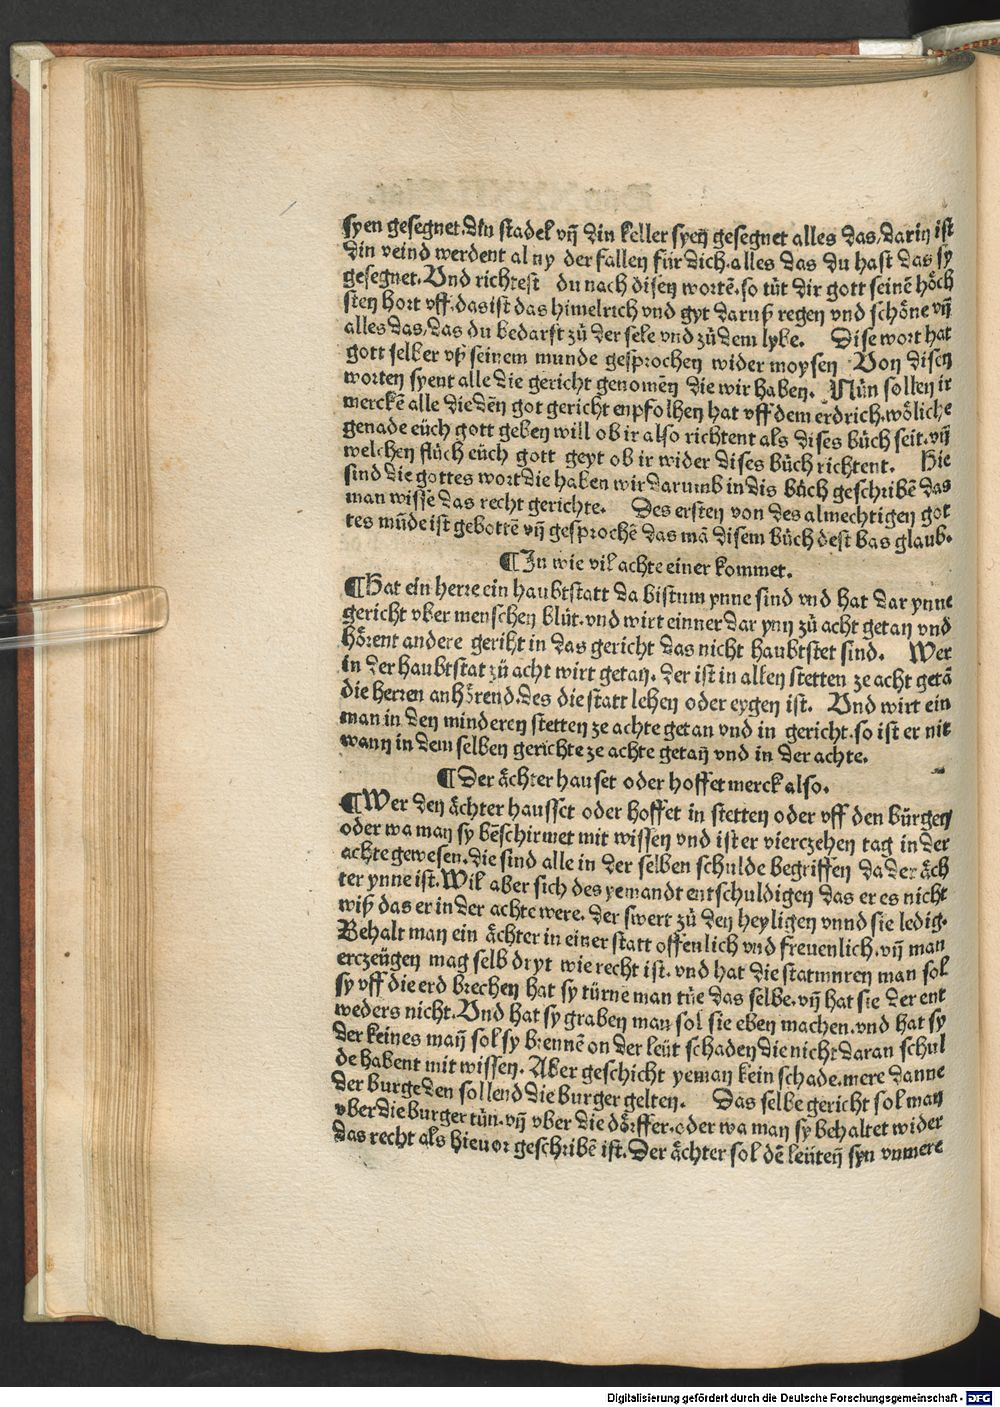 syen gesegnet. Din stadel vñ din keller syen gesegnet alles das, darin ist
din veind werdent al ny der fallen für dich. alles das du hast das sy
gesegnet. Vnd richtest du nach disen wortē. so tůt dir gott seinē höch
sten hort vff. das ist das himelrich vnd gyt daruß regen vnd schöne vñ
alles das, das du bedarft zů der sele vnd zů dem lybe. Dise wort hat
gott selber vß seinem munde gesprochen wider moysen Von disen
worten syent alle die gericht genomē die wir haben. Nůn sollen ir
merckē alle die dēn got gericht enpfolhen hat vff dem erdrich. wöliche
genade eüch gott geben will ob ir also richtent als dises bůch seit. vñ
welchen flůch eüch gott geyt ob ir wider dises bůch richtent. Hie
sind die gottes wort die haben wir darumb in dis bůch geschribē das
man wisse das recht gerichte. Des ersten von des almechtigen got
tes mūde ist gebottē vñ gesprochē das mā disem bůch dest bas glaub.
¶ In wie vil achte einer kommet.
¶ Hat ein herre ein haubtstatt da bistum ynne sind vnd hat dar ynne
gericht vber menschen blůt. vnd wirt einner dar ynn zů acht getan vnd
hörent andere geriht in das gericht das nicht haubtstet sind. Wer
in der haubtstat zů acht wirt getan. der ist in allen stetten ze acht getā
die herren an hörend. des die statt lehen oder eygen ist. Vnd wirt ein
man in den minderen stetten ze achte getan vnd in gericht. so ist er nit
wann in dem selben gerichte ze achte getañ vnd in der achte.
¶ Der ächter hauset oder hoffet merck also.
¶ Wer den ächter hausset oder hoffet in stetten oder vff den bürgen
oder wa man sy beschirmet mit wissen vnd ist er vierczehen tag in der
achte gewesen. die sind alle in der selben schulde begriffen da der äch
ter ynne ist. Wil aber sich des yemandt entschuldigen das er es nicht
wiß das er in der achte were. der swert zů den heyligen vnnd sie ledig.
Behalt man ein ächter in einer statt offenlich vnd freuenlich. vñ man
erczeügen mag selb dryt wie recht ist. vnd hat die stat mnren man sol
sy vff die erd brechen hat sy türne man tüe das selbe. vñ hat sie der ent
weders nicht. Vnd hat sy graben man sol sie eben machen. vnd hat sy
der keines mañ sol sy brennē on der leüt schaden die nicht daran schul
de habent mit wissen. Aber geschicht yeman kein schade. mere danne
der burge den sollend die burger gelten. Das selbe gericht sol man
vber die burger tůn. vñ vber die dörffer. oder wa man sy behaltet wider
das recht als hieuor geschribē ist. Der ächter sol dē leütē syn vnmere
Digitalisierung gefördert durch die Deutsche Forschungsgemeinschaft - DFG